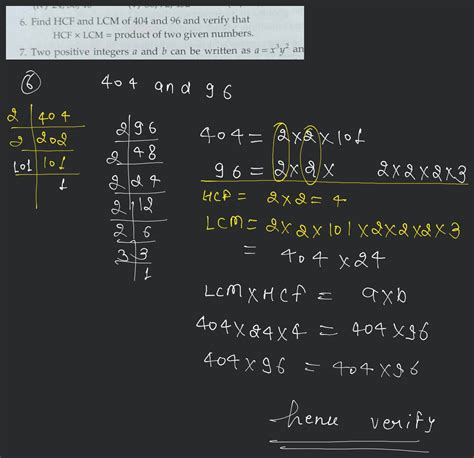 6. Find HCF and LCM of 404 and 96 and verify that
HCF × LCM = product of two given numbers.
7. Two positive integers a and b can be written as a = x³y² an
6 404 and 96
2 404
2 202
101 101
1
2 96
2 48
2 24
2 12
2 6
3 3
1
404 = 2×2×101
96 = 2×2× 2×2×2×3
HCF = 2×2 = 4
LCM = 2×2×101×2×2×2×3
= 404 ×24
LCM×HCf = a×b
404×24×4 = 404×96
404×96 = 404×96
hence verify